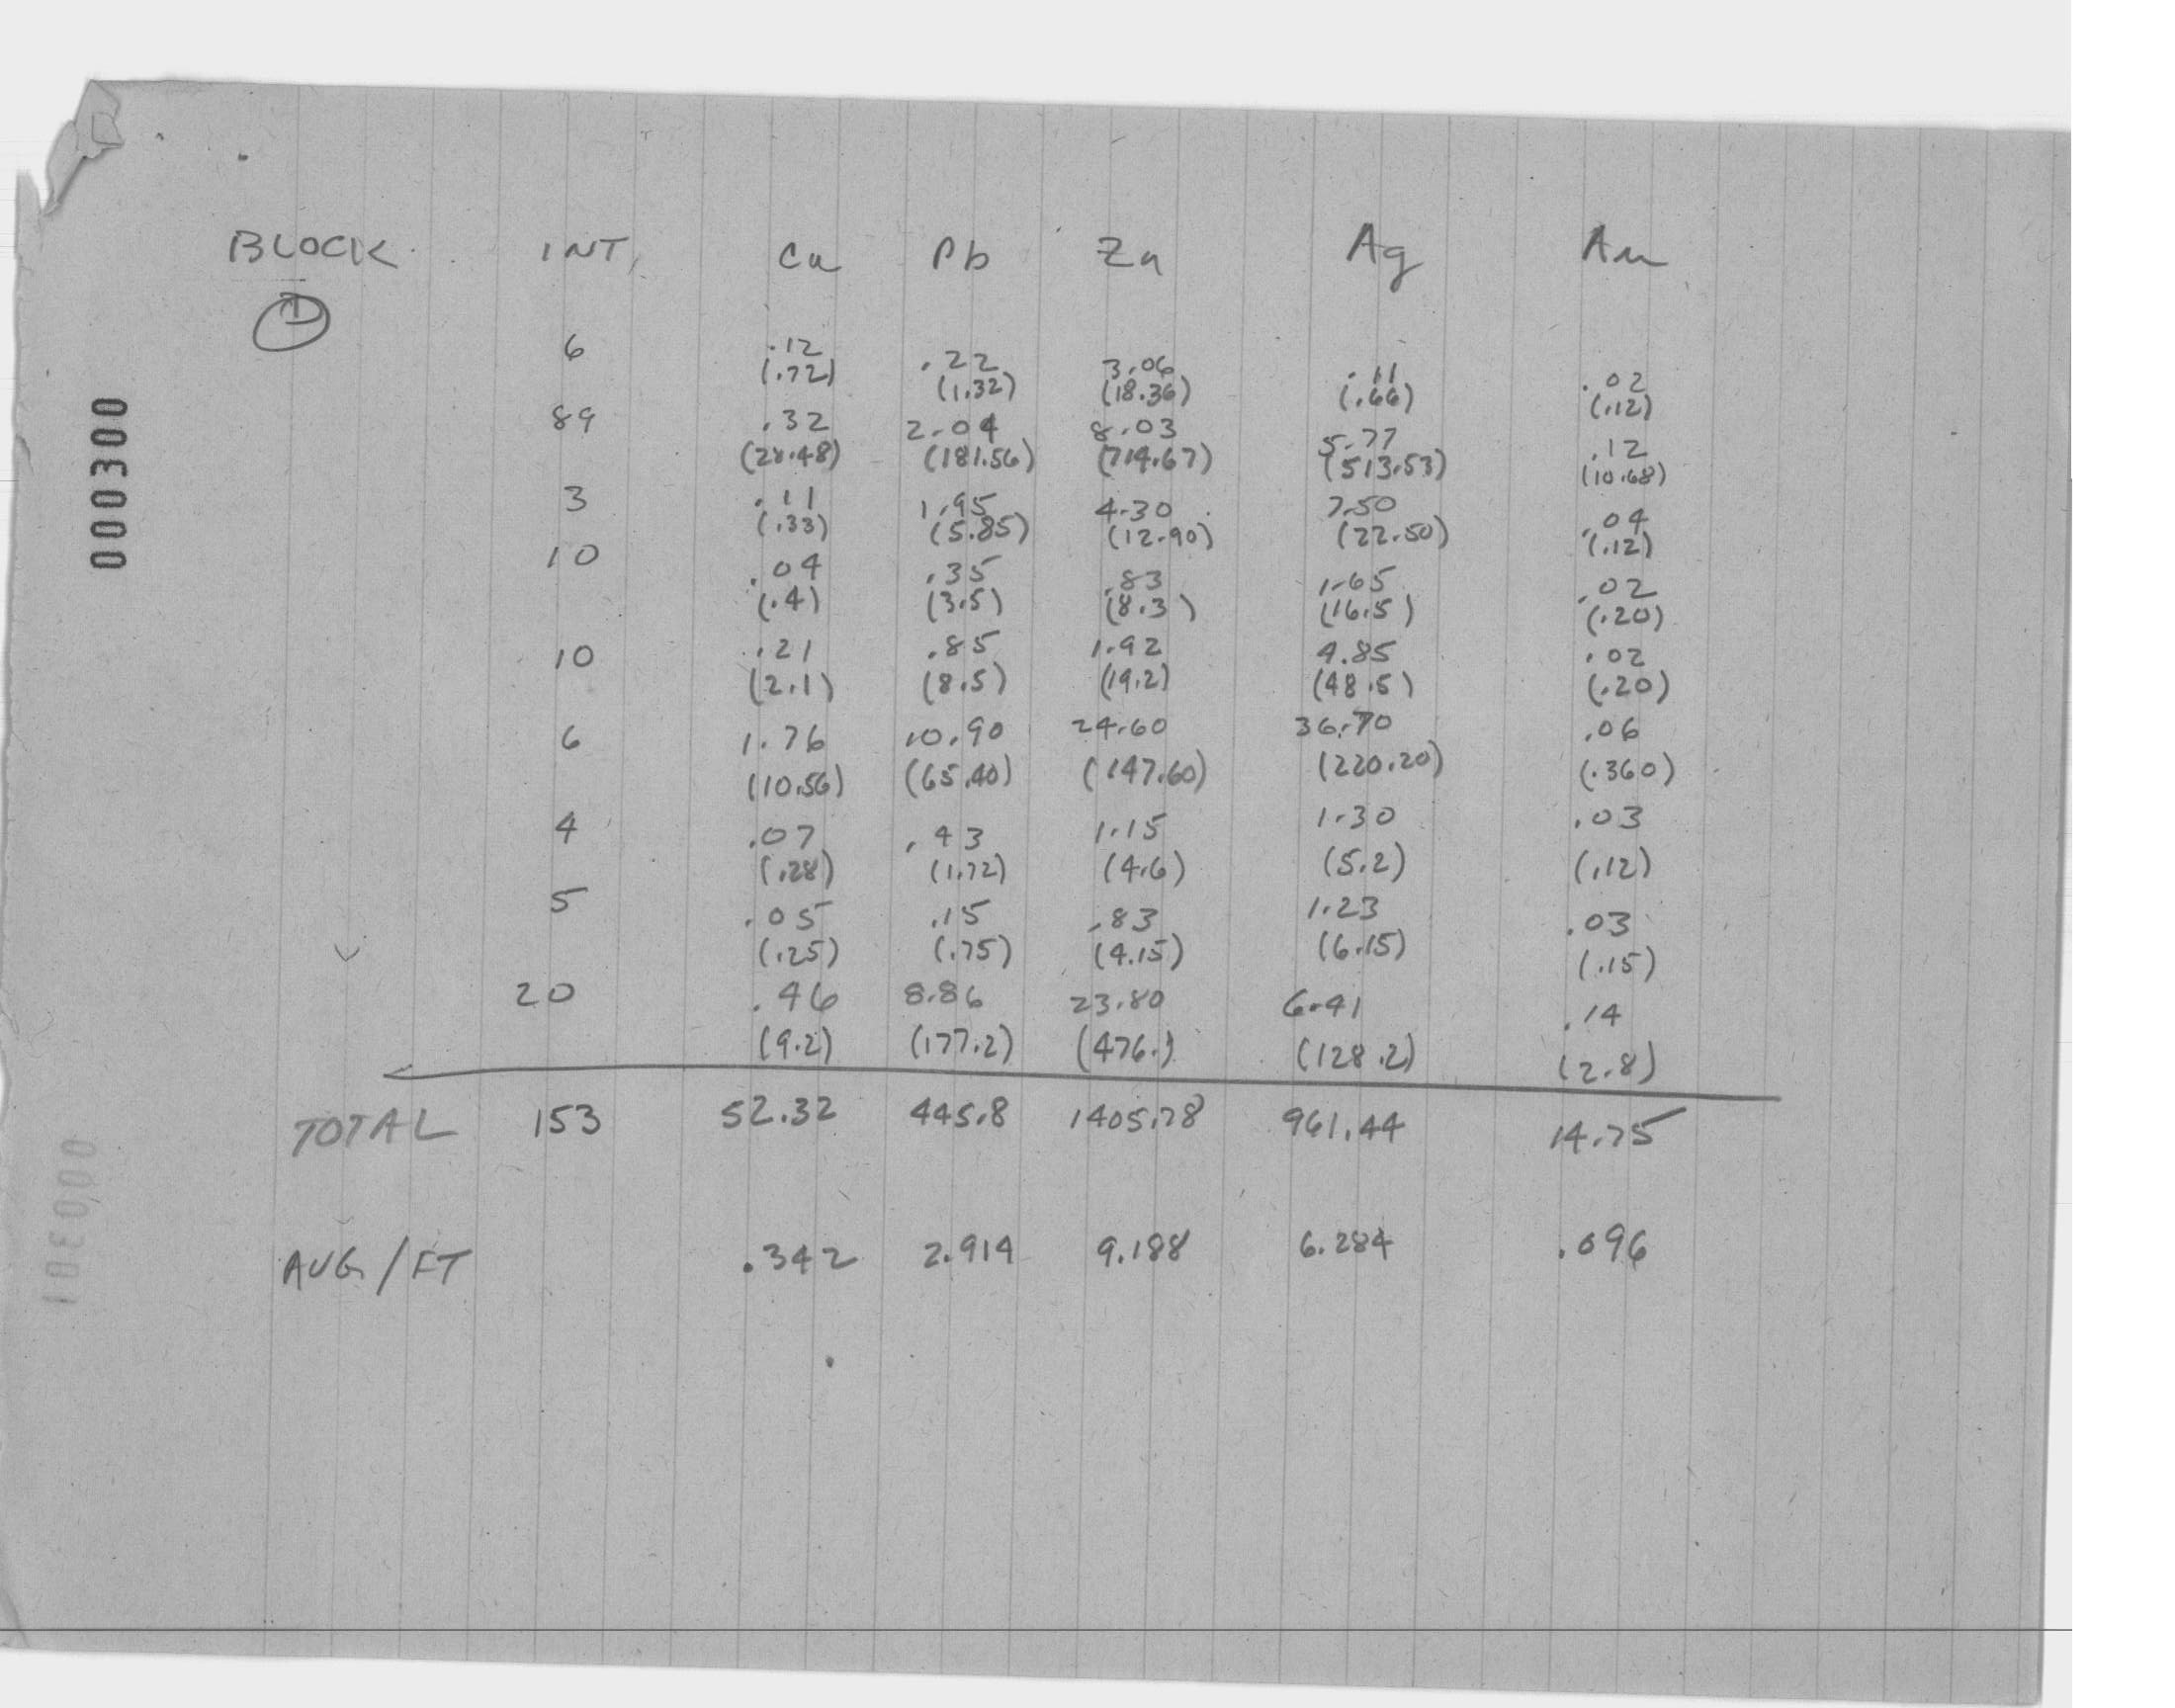 BLOCK INT. Cu Pb Zn Ag Au
1
6 .12 .22 3.06 .11 .02
(.72) (1.32) (18.36) (.66) (.12)
89 .32 2.04 8.03 5.77 .12
(28.48) (181.56) (714.67) (513.53) (10.68)
3 .11 1.95 4.30 7.50 .04
(.33) (5.85) (12.90) (22.50) (.12)
10 .04 .35 .83 1.65 .02
(.4) (3.5) (8.3) (16.5) (.20)
10 .21 .85 1.92 4.85 .02
(2.1) (8.5) (19.2) (48.5) (.20)
6 1.76 10.90 24.60 36.70 .06
(10.56) (65.40) (147.60) (220.20) (.360)
4 .07 .43 1.15 1.30 .03
(.28) (1.72) (4.6) (5.2) (.12)
5 .05 .15 .83 1.23 .03
(.25) (.75) (4.15) (6.15) (.15)
20 .46 8.86 23.80 6.41 .14
(9.2) (177.2) (476.) (128.2) (2.8)
TOTAL 153 52.32 445.8 1405.78 961.44 14.75
AVG/FT .342 2.914 9.188 6.284 .096
000300
000301